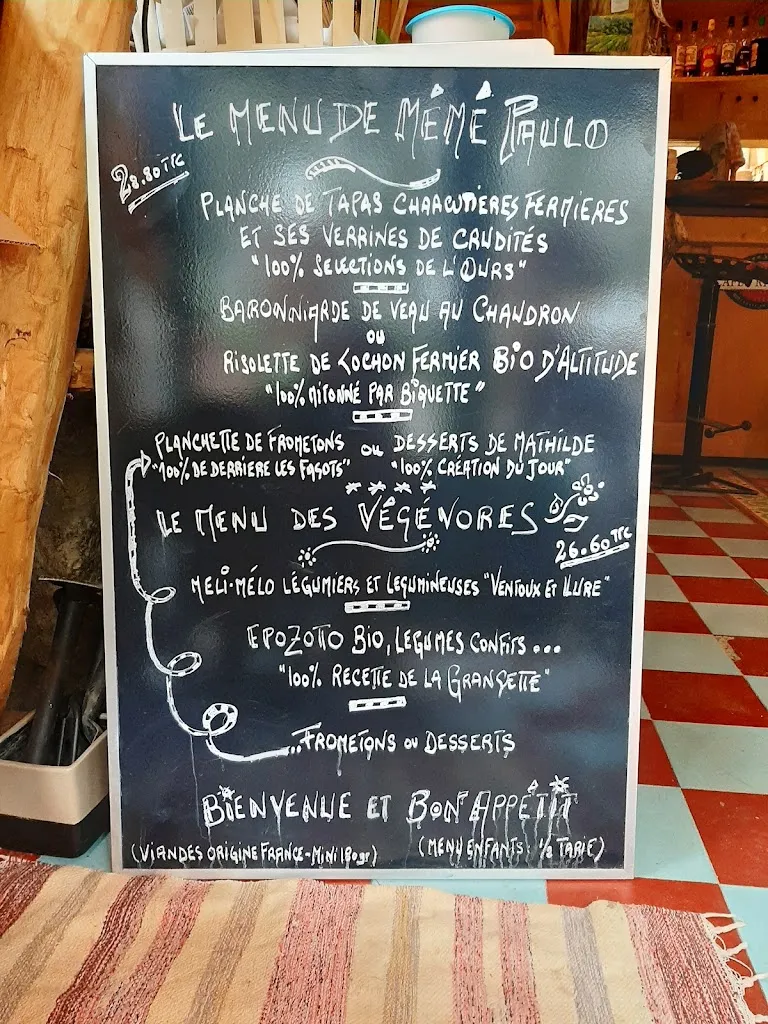 LE MENU DE MÉMÉ PAULO
28.80 TTC
PLANCHE DE TAPAS CHARCUTIÈRES FERMIERES
ET SES VERRINES DE CRUDITÉS
"100% SELECTIONS DE L'OURS"
BARONNIARDE DE VEAU AU CHAUDRON
OU
RISOLETTE DE COCHON FERMIER BIO D'ALTITUDE
"100% MITONNÉ PAR BIQUETTE"
PLANCHETTE DE FROMETONS OU DESSERTS DE MATHILDE
"100% DE DERRIERE LES FAGOTS" "100% CRÉATION DU JOUR"
LE MENU DES VÉGÉVORES
26.60 TTC
MELI-MÉLO LÉGUMIERS ET LEGUMINEUSES "VENTOUX ET LURE"
EPOZOTTO BIO, LEGUMES CONFITS...
"100% RECETTE DE LA GRANGETTE"
..FROMETONS OU DESSERTS
BIENVENUE ET BON APPÉTIT
(VIANDES ORIGINE FRANCE-MINI 180gr) (MENU ENFANTS: 1/2 TARIF)